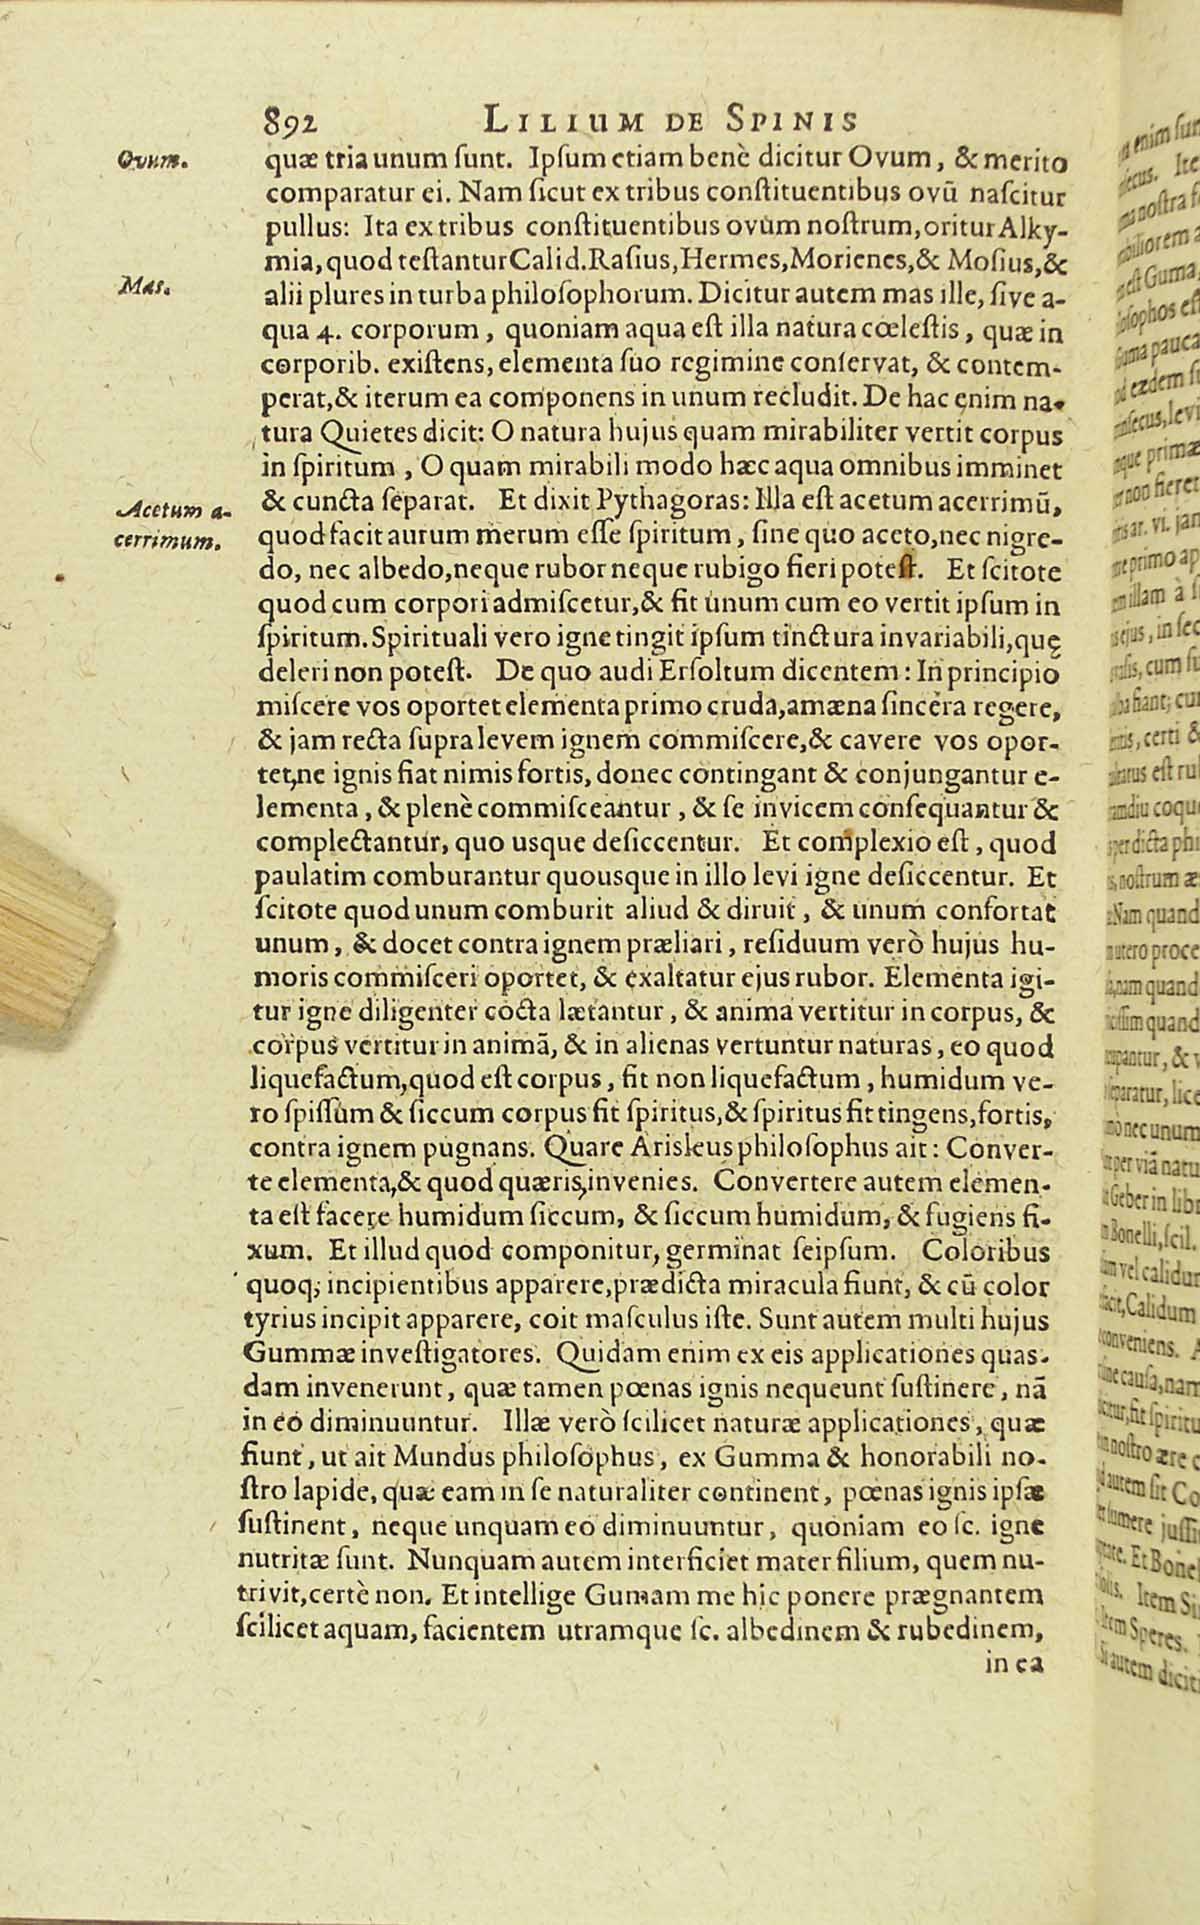 892 LILIUM DE SPINIS
Ovum.
quæ tria unum ſunt. Ipſum etiam benè dicitur Ovum, & merito
comparatur ei. Nam ſicut ex tribus conſtituentibus ovū naſcitur
pullus: Ita ex tribus conſtituentibus ovum noſtrum, oritur Alky-
mia, quod teſtantur Calid. Raſius, Hermes, Morienes, & Moſius, &
Mas.
alii plures in turba philoſophorum. Dicitur autem mas ille, ſive a-
qua 4. corporum, quoniam aqua eſt illa natura cœleſtis, quæ in
corporib. exiſtens, elementa ſuo regimine conſervat, & contem-
perat, & iterum ea componens in unum recludit. De hac enim na-
tura Quietes dicit: O natura hujus quam mirabiliter vertit corpus
in ſpiritum, O quam mirabili modo hæc aqua omnibus imminet
Acetum a-
cerrimum.
& cuncta ſeparat. Et dixit Pythagoras: Illa eſt acetum acerrimū,
quod facit aurum merum eſſe ſpiritum, ſine quo aceto, nec nigre-
do, nec albedo, neque rubor neque rubigo fieri poteſt. Et ſcitote
quod cum corpori admiſcetur, & fit unum cum eo vertit ipſum in
ſpiritum. Spirituali vero igne tingit ipſum tinctura invariabili, quę
deleri non poteſt. De quo audi Erſoltum dicentem: In principio
miſcere vos oportet elementa primo cruda, amæna ſincera regere,
& jam recta ſupra levem ignem commiſcere, & cavere vos opor-
tet, ne ignis fiat nimis fortis, donec contingant & conjungantur e-
lementa, & plenè commiſceantur, & ſe invicem conſequantur &
complectantur, quo usque deſiccentur. Et complexio eſt, quod
paulatim comburantur quousque in illo levi igne deſiccentur. Et
ſcitote quod unum comburit aliud & diruit, & unum confortat
unum, & docet contra ignem præliari, reſiduum verò hujus hu-
moris commiſceri oportet, & exaltatur ejus rubor. Elementa igi-
tur igne diligenter cocta lætantur, & anima vertitur in corpus, &
corpus vertitur in animā, & in alienas vertuntur naturas, eo quod
liquefactum, quod eſt corpus, fit non liquefactum, humidum ve-
ro ſpiſſum & ſiccum corpus fit ſpiritus, & ſpiritus fit tingens, fortis,
contra ignem pugnans. Quare Arisleus philoſophus ait: Conver-
te elementa, & quod quæris, invenies. Convertere autem elemen-
ta eſt facere humidum ſiccum, & ſiccum humidum, & fugiens fi-
xum. Et illud quod componitur, germinat ſeipſum. Coloribus
quoq; incipientibus apparere, prædicta miracula fiunt, & cū color
tyrius incipit apparere, coit maſculus iſte. Sunt autem multi hujus
Gummæ inveſtigatores. Quidam enim ex eis applicationes quas-
dam invenerunt, quæ tamen pœnas ignis nequeunt ſuſtinere, nā
in eo diminuuntur. Illæ verò ſcilicet naturæ applicationes, quæ
fiunt, ut ait Mundus philoſophus, ex Gumma & honorabili no-
ſtro lapide, quæ eam in ſe naturaliter continent, pœnas ignis ipſæ
ſuſtinent, neque unquam eo diminuuntur, quoniam eo ſc. igne
nutritæ ſunt. Nunquam autem interficiet mater filium, quem nu-
trivit, certè non. Et intellige Gumam me hic ponere prægnantem
ſcilicet aquam, facientem utramque ſc. albedinem & rubedinem,
in ea